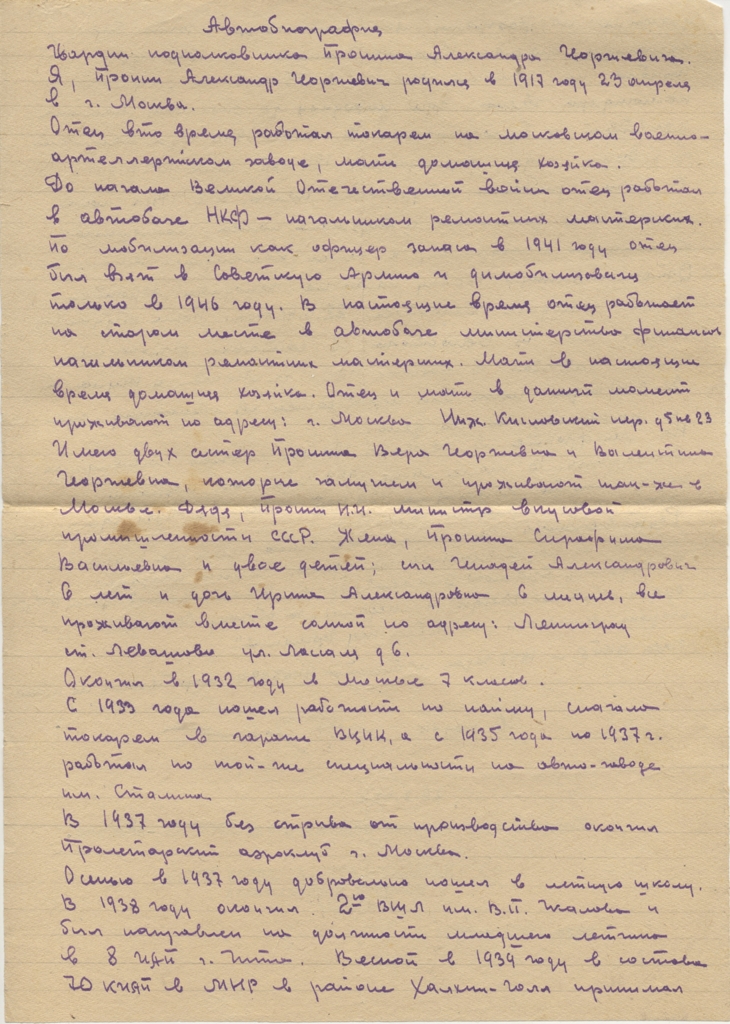 Автобиография
Гвардии подполковника Пронина Александра Георгиевича.
Я, Пронин Александр Георгиевич родился в 1917 году 23 апреля
в г. Москва.
Отец вто время работал токарем на московском военно-
артеллерийском заводе, мать домашняя хозяйка.
До начала Великой Отечественной войны отец работал
в автобазе НКФ – начальником ремонтных мастерских.
По мобилизации как офицер запаса в 1941 году отец
был взят в Советскую Армию и димобилизован
только в 1946 году. В настоящие время отец работает
на старом месте в автобазе министерства финансов
начальником ремантных мастерских. Мать в настоящие
время домашняя хозяйка. Отец и мать в данный момент
проживают по адресу: г. Москва Ниж. Кисловский пер. д5 кв 23
Имею двух сестер Пронина Вера Георгиевна и Валентина
Георгиевна, которые замужем и проживают так-же в
Москве. Дядя, Пронин Н.И. министр вкусовой
промышленности СССР. Жена, Пронина Серафима
Васильевна и двое детей; сын Генадей Александрович
6 лет и дочь Ирина Александровна 6 месяцев, все
проживают вместе сомной по адресу: Ленинград
ст. Левашово ул. д 6.
Окончил в 1932 году в Москве 7 класов.
С 1933 года пошел работать по найму, сначала
токарем в гараже ВЦИК, а с 1935 года по 1937 г.
работал по той-же специальности на авто-заводе
им. Сталина
В 1937 году без отрыва от производства окончил
Пролетарский аэроклуб г. Москва.
Осенью в 1937 году добровольно пошел в летную школу.
В 1938 году окончил 2ю ВШЛ им. В.П. Чкалова и
был направлен на должность младшего летчика
в 8 ИАП г. Чита. Весной в 1939 году в составе
70 КИАП в МНР в районе Халхин-гола принимал